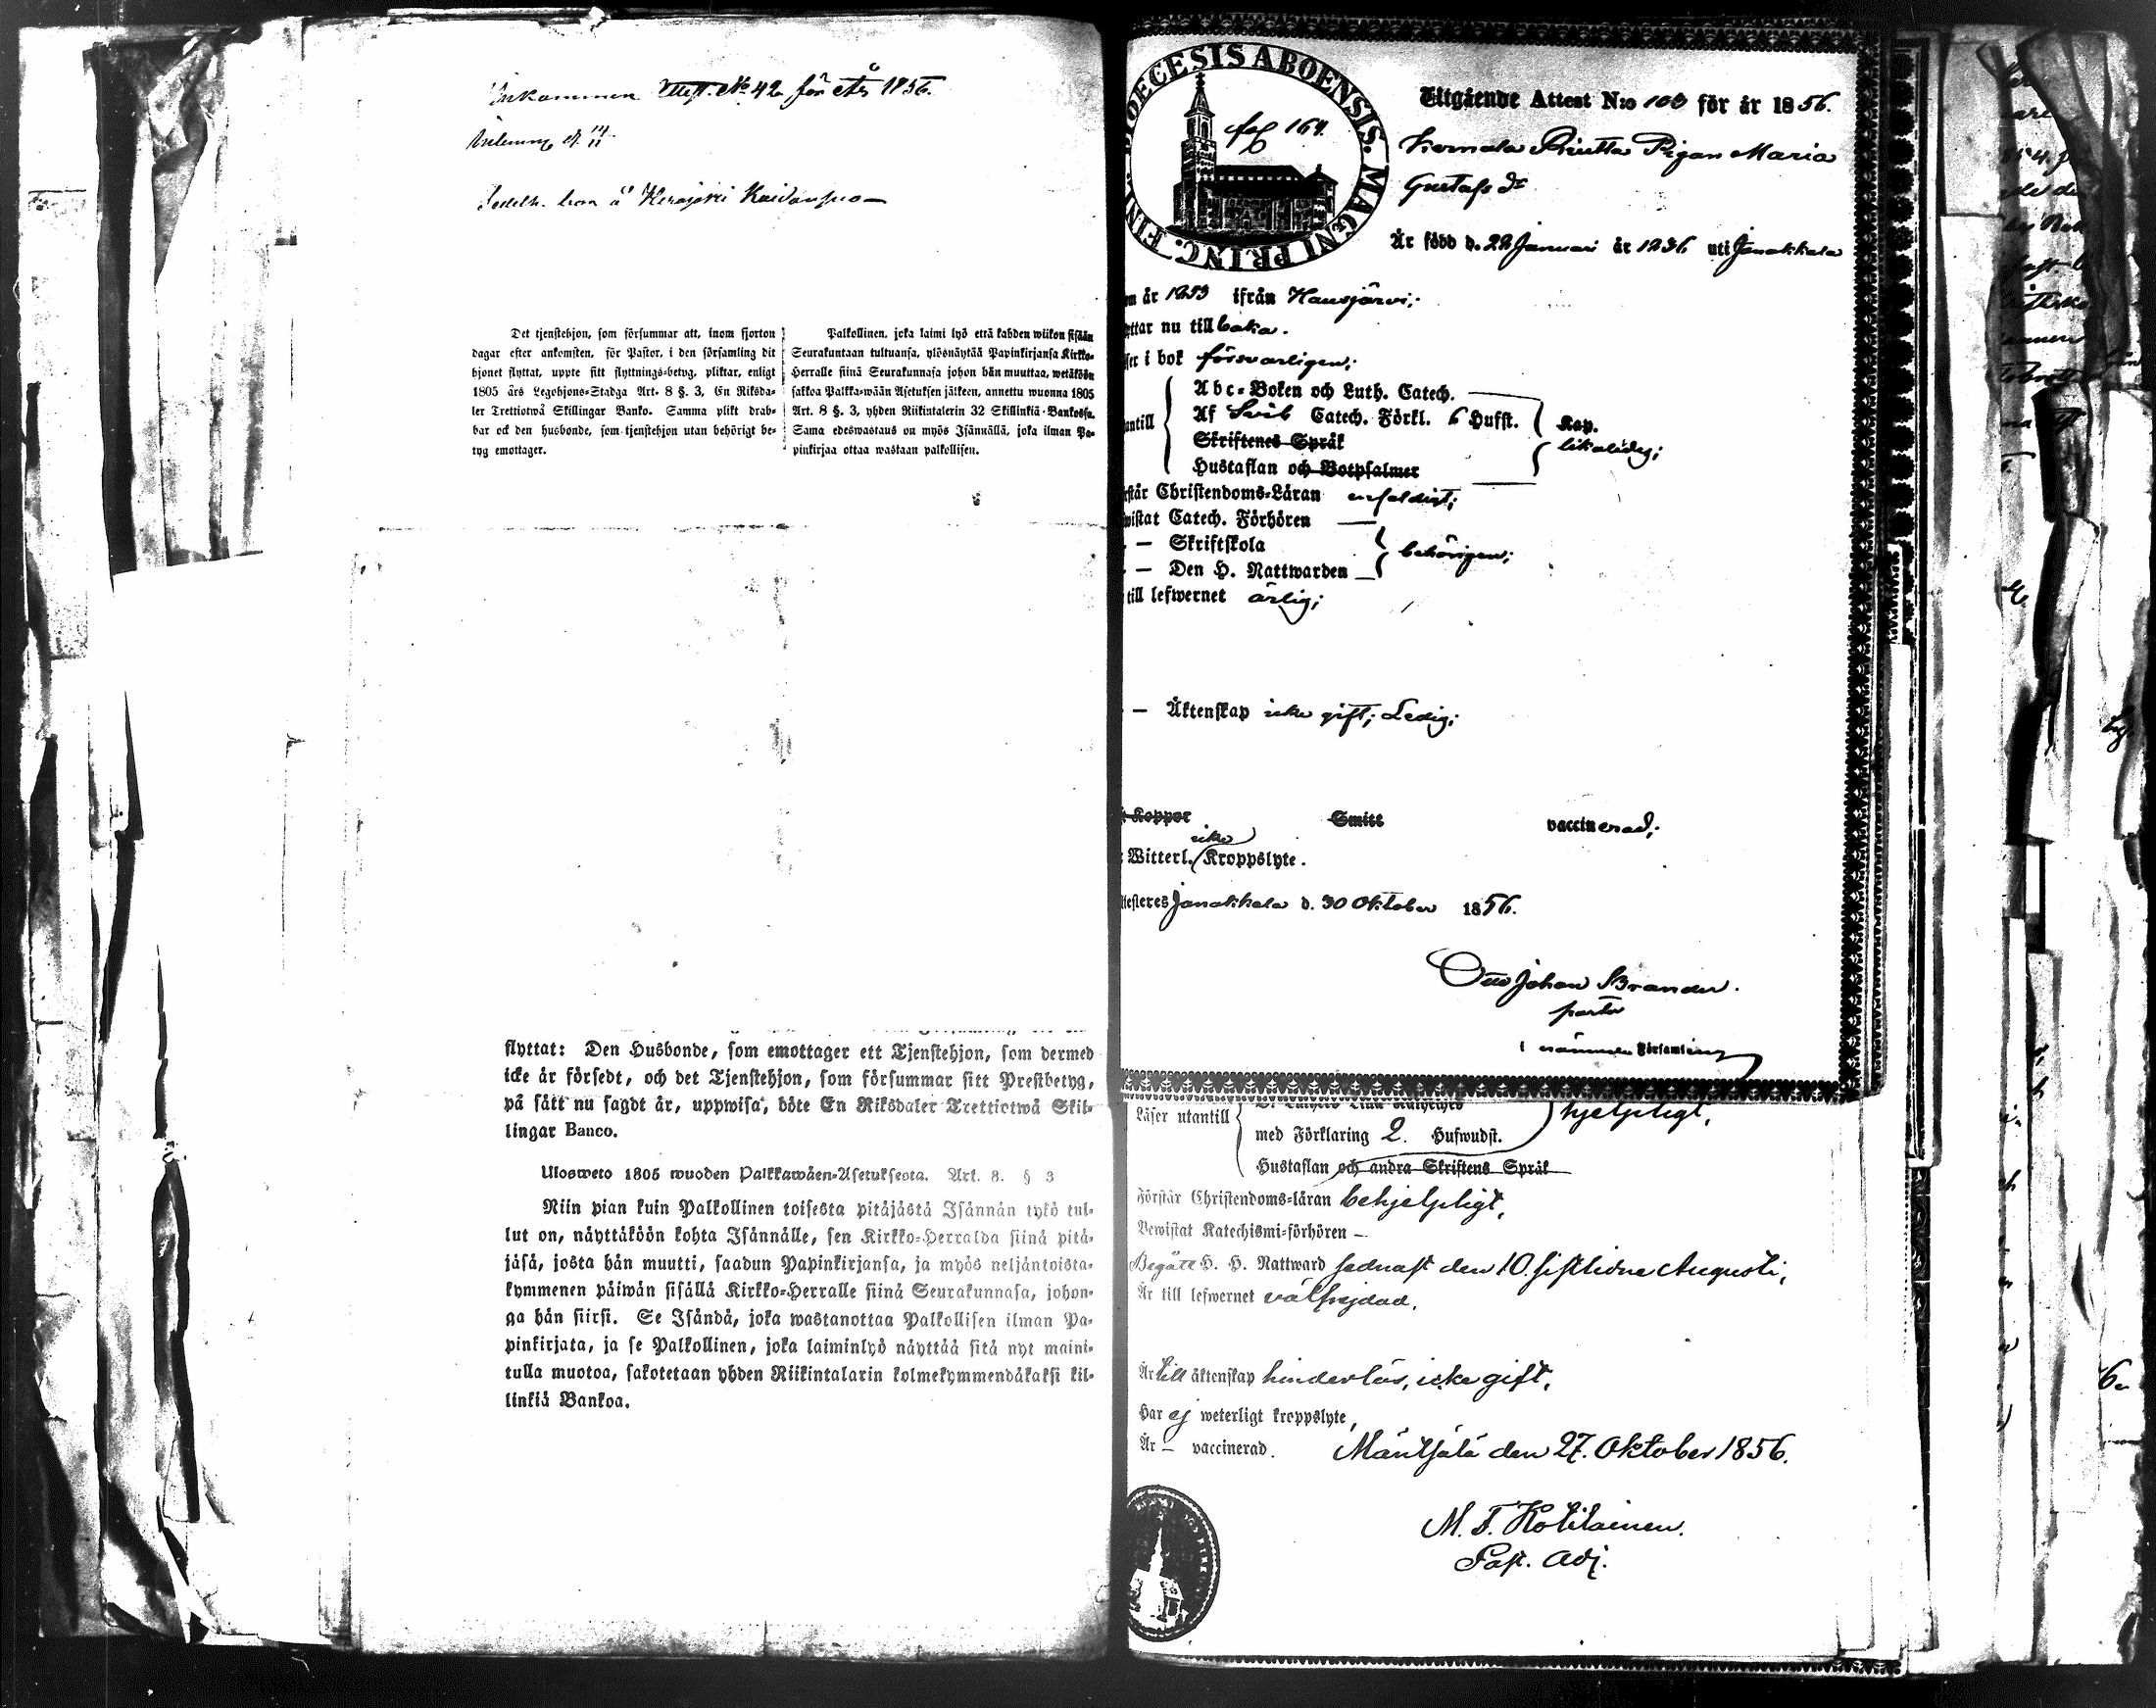 Inkommen Att. No 42 för År 1856.
d. 14/11
Hirajoki
Det tjenstehjon, som försummar att, inom fjorton
dagar efter ankomsten, för Pastor, i den församling dit
hjonet flyttat, uppte sitt flyttnings-betyg, pliktar, enligt
1805 års Legohjons-Stadga Art. 8 §. 3, En Riksda-
ler Trettiotwå Skillingar Banko. Samma plikt drab-
bar ock den husbonde, som tjenstehjon utan behörigt be-
tyg emottager.
Palkollinen, joka laimi lyö että kahden wiikon sisään
Seurakuntaan tultuansa, ylösnäytää Papinkirjansa Kirkko-
Herralle siinä Seurakunnasa johon hän muuttaa, wetäköön
sakkoa Palkka-wään Asetuksen jälkeen, annettu wuonna 1805
Art. 8 §. 3, yhden Riikintalerin 32 Skillinkiä Bankossa.
Sama edeswastaus on myös Isännällä, joka ilman Pa-
pinkirjaa ottaa wastaan palkollisen.
flyttat: Den Husbonde, som emottager ett Tjenstehjon, som dermed
icke är försedt, och det Tjenstehjon, som försummar sitt Prestbetyg,
på sätt nu sagdt är, uppwisa, böte En Riksdaler Trettiotwå Skil-
lingar Banco.
Ulosweto 1805 wuoden Palkkawäen-Asetuksesta. Art. 8. § 3
Niin pian kuin Palkollinen toisesta pitäjästä Isännän tykö tul-
lut on, näyttäköön kohta Isännälle, sen Kirkko-Herralda siinä pitä-
jäsä, josta hän muutti, saadun Papinkirjansa, ja myös neljäntoista-
kymmenen päiwän sisällä Kirkko-Herralle siinä Seurakunnasa, johon-
ga hän siirsi. Se Isändä, joka wastanottaa Palkollisen ilman Pa-
pinkirjata, ja se Palkollinen, joka laiminlyö näyttää sitä nyt maini-
tulla muotoa, sakotetaan yhden Riikintalarin kolmekymmendäkaksi kil-
linkiä Bankoa.
DIOECESIS ABOENSIS. MAGNI PRINC. FINL.
fol 164.
Utgående Attest N:o 103 för år 1856.
Pigan Maria
Gustafs dr
Är född d. 22 Januari år 1836 uti Janakkala
år 1853 ifrån Hausjärvi;
nu till baka.
i bok försvarligen;
Abc-Boken och Luth. Catech.
Af Svib Catech. Förkl. 6 Hufst. Kap.
Skriftenes Språk likaledes;
Hustaflan och Botpsalmer
Christendoms-Läran enfaldigt;
Catech. Förhören
— Skriftskola behörigen;
— Den H. Nattwarden
till lefwernet ärlig;
— Äktenskap icke gift; Ledig;
Koppor Smitt vaccinerad;
icke
Witterl. Kroppslyte.
Janakkala d. 30 Oktober 1856.
Otto Johan Brander.
pastor
i nämnde Församling
Läser utantill
med Förklaring 2. Hufwudst. hjelpligt,
Hustaflan och andra Skriftens Språk
Förstår Christendoms-läran behjelpligt,
Bewistat Katechismi-förhören —
Begått H. H. Nattward sednast den 10. sistlidne Augusti,
Är till lefwernet välfrejdad,
Är till äktenskap hinderlös, icke gift,
Har ej weterligt kroppslyte,
Är — vaccinerad. Mäntsälä den 27. Oktober 1856.
M. F. Kotilainen.
Past. Adj.